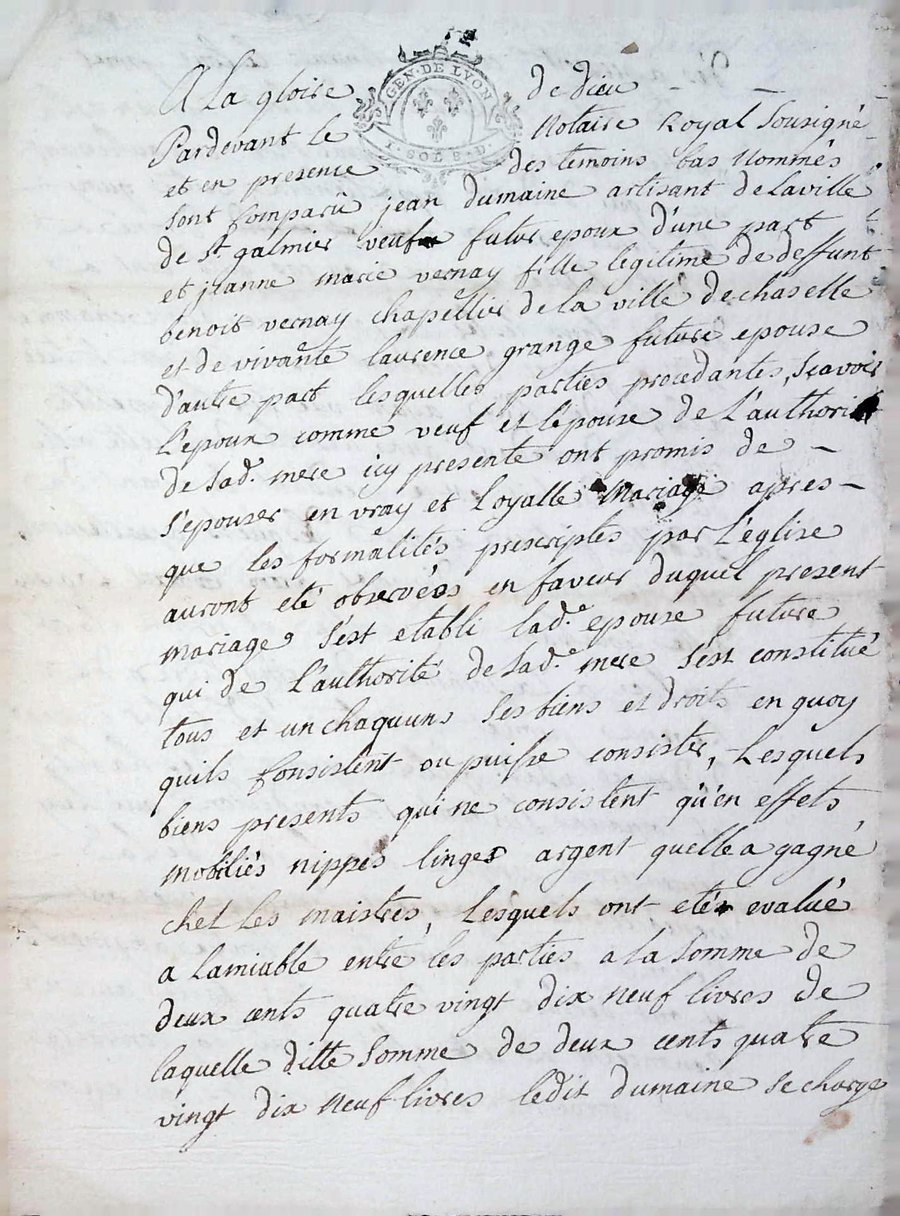 GEN·DE LYON
1·SOL 8·D·
A La gloire de dieu
Pardevant le Notaire Royal Sousigné
et en presence des temoins bas Nommés
sont Comparu jean dumaine artisant de Laville
de St. galmier veuf futur epoux d'une part
et jeanne marie vernay fille legitime de deffunt
benoit vernay chapellier de la ville de chaselle
et de vivante laurence grange future epouse
d'autre part lesquelles parties procedantes, Sçavoir
L'epoux comme veuf et L'epouse de L'authorité
de Sad.e mere icy presente ont promis de
S'epouser en vray et Loyalle Mariage apres
que les formalités prescriptes par L'église
auront eté observées en faveur duquel present
mariage s'est etabli lad.e epouse future
qui de L'authorité de Sad.e mere s'est constitué
tous et un chaquuns ses biens et droits en quoy
quils Consistent ou puisse consister, Lesquels
biens presents qui ne consistent qu'en effets
mobiliés nippes linges argent quelle a gagné
chet Les maistres, Lesquels ont eté evalué
a Lamiable entre les parties a la somme de
deux cents quatre vingt dix neuf livres de
laquelle ditte Somme de deux cents quatre
vingt dix neuf livres ledit dumaine se charge